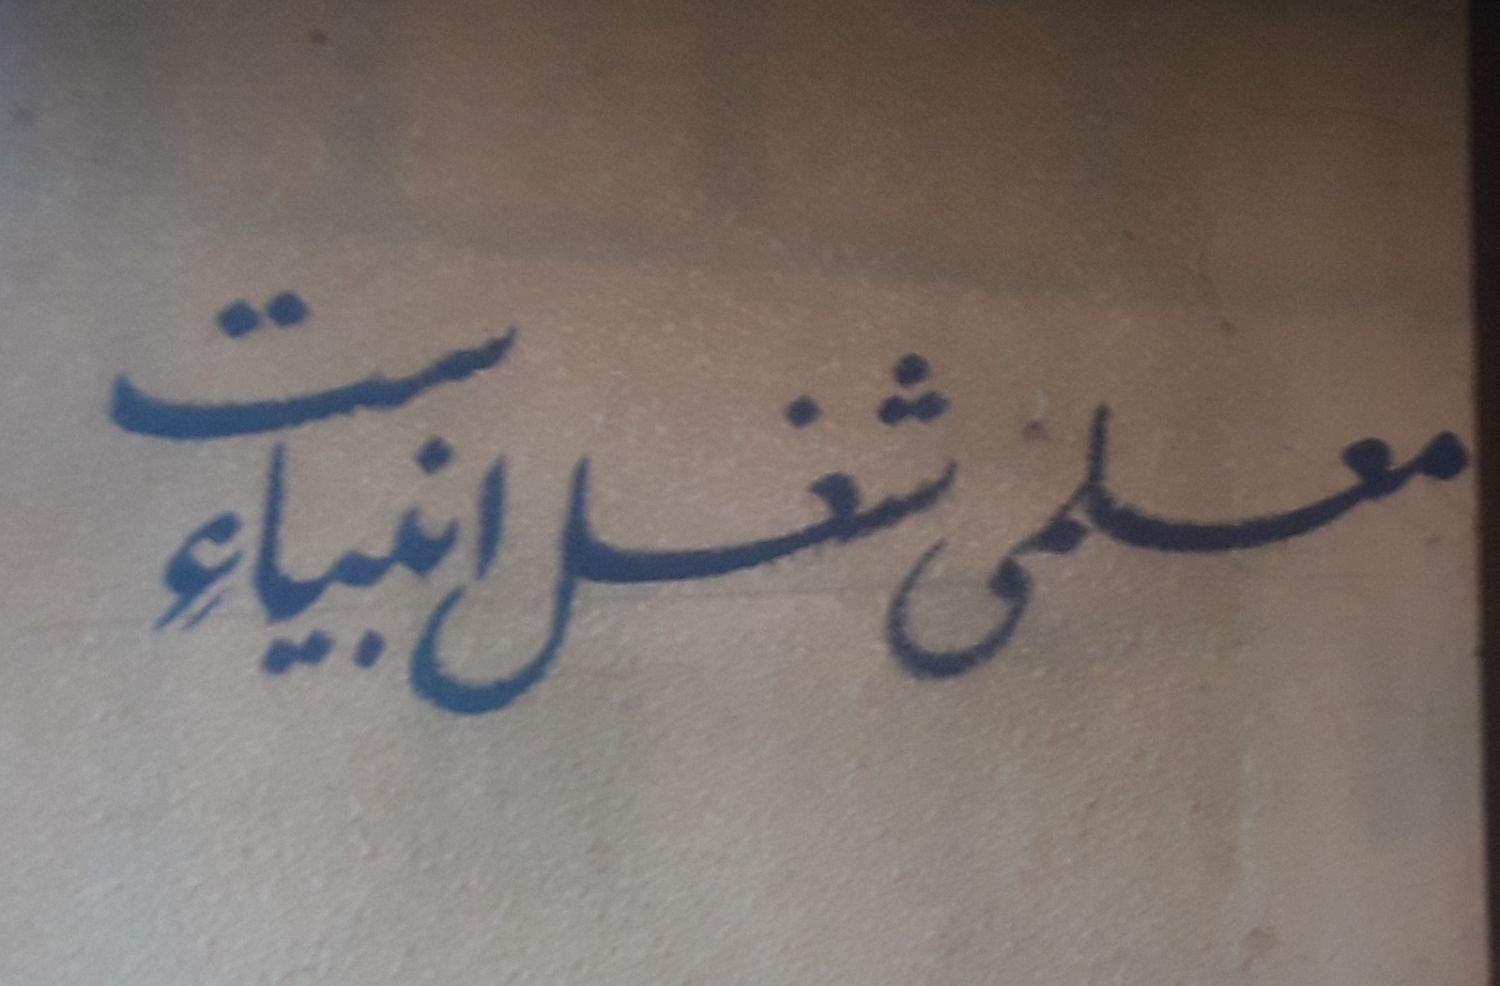 معلمی شغل انبیاءِ ست